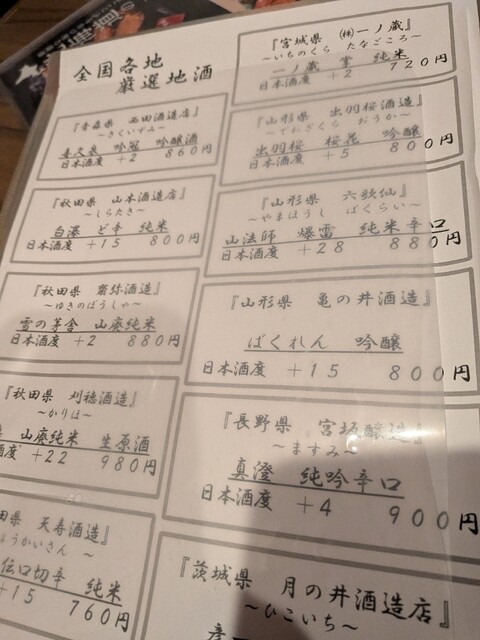 全国各地
厳選地酒
『青森県 西田酒造店』
~きくいずみ~
喜久泉 吟冠 吟醸酒
日本酒度 +2 860円
『秋田県 山本酒造店』
~しらたき~
白瀑 ど辛 純米
日本酒度 +15 800円
『秋田県 齋弥酒造』
~ゆきのぼうしゃ~
雪の茅舎 山廃純米
日本酒度 +2 880円
『秋田県 刈穂酒造』
~かりほ~
山廃純米 生原酒
酒度 +22 980円
田県 天寿酒造』
うかいさん ~
伝口切辛 純米
+15 760円
『宮城県 (株)一ノ蔵』
~いちのくら たなごころ~
一ノ蔵 掌 純米
日本酒度 +2 720円
『山形県 出羽桜酒造』
~でわざくら おうか~
出羽桜 桜花 吟醸
日本酒度 +5 800円
『山形県 六歌仙』
~やまほうし ばくらい~
山法師 爆雷 純米辛口
日本酒度 +28 880円
『山形県 亀の井酒造』
ばくれん 吟醸
日本酒度 +15 800円
『長野県 宮坂醸造』
~ますみ~
真澄 純吟辛口
日本酒度 +4 900円
『茨城県 月の井酒造店』
~ひこいち~
彦